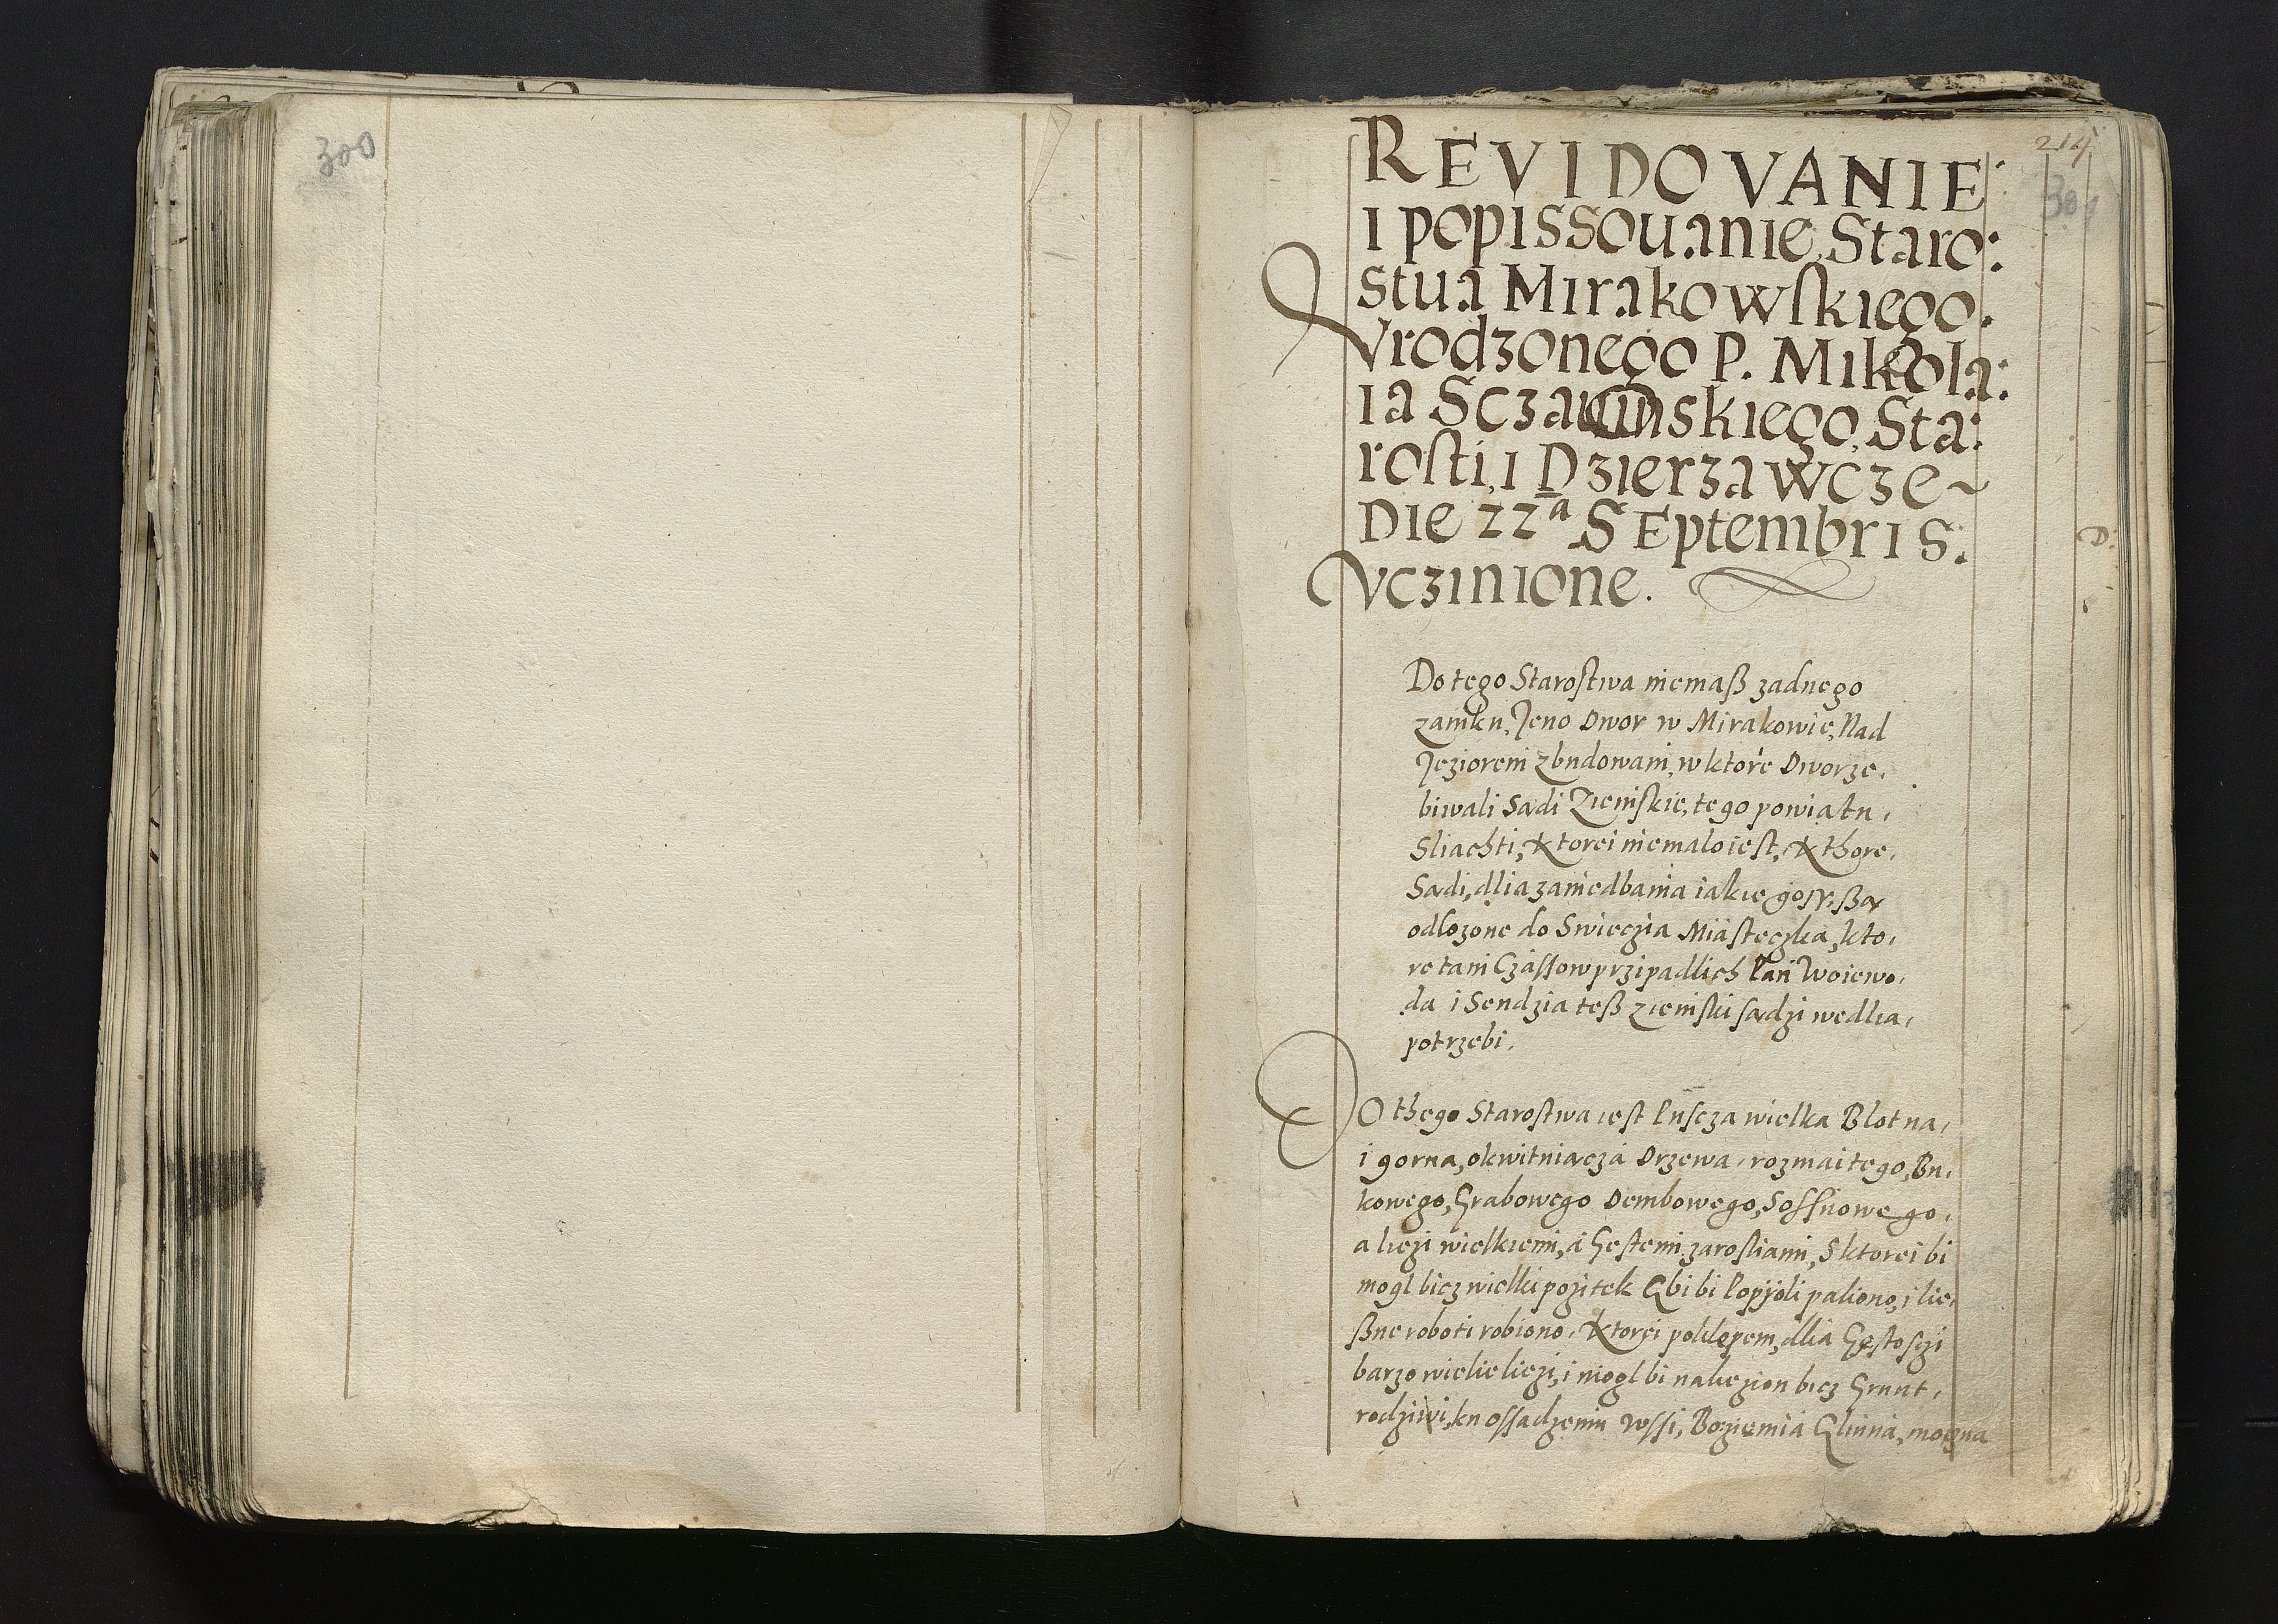 300
214
301
REVIDOVANIE
I popissouanie Staro:
stua Mirakowskiego.
Vrodzonego P. Mikola:
ia Sczawinskiego, Sta:
rosti, i Dzierzawcze~
Die 22ª SEptembris.
Vczinione.
D:
Do tego Starostwa niemaß zadnego
zamku, Jeno Dwor w Mirakowie, Nad
Jeziorem zbudowani, w ktore Dworze,
biwali Sądi Ziemskie, tego powiatu,
Sliachti, ktorei niemalo iest, kthore,
Sądi, dlia zaniedbania iakiegosz, ßą
odlozone do Swieczia Miasteczka, kto,
re tam Czassow przipadlich Pan Woiewo,
da i Sendzia teß ziemski sądzi wedlia,
potrzebi.
DO thego Starostwa iest Puscza wielka Blotna,
i gorna, okwitniącza Drzewa, rozmaitego, Bu,
kowego, Grabowego Dembowego, Sossnowego,
a liezi wielkiemi, á Gestemi zarosliami, S ktorei bi
mogl bicz wielki pozitek Gbi bi Popjoli paliono, i lie,
ßne roboti robiono, ktorei poklepem, dlia Gęstosczi
barzo wielie liezi, i mogl bi naliezion bicz Grunt,
rodziwi, ku ossadzeniu wssi, Bo ziemia Glinna, mozna